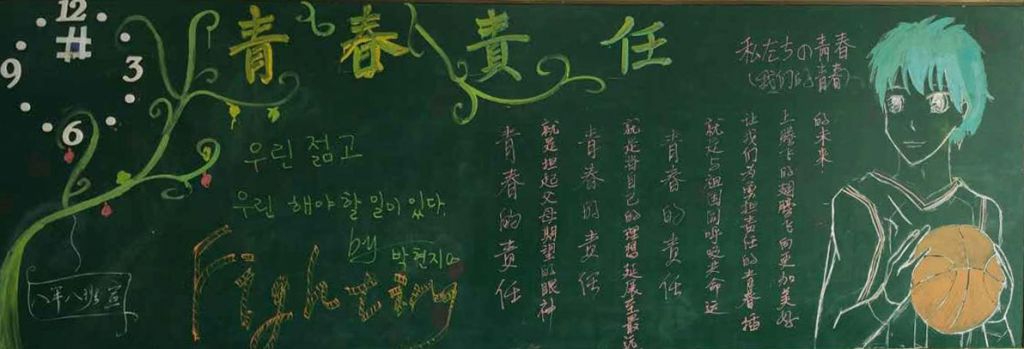 12
3
6
9
青春責任
私たちの青春
(我们的青春)
우린 젊고
우린 해야 할 일이 있다.
by 박현지
Fighting
青春的责任
就是担起父母期望的眼神
青春的责任
就是将自己的理想延展至最远
青春的责任
就是与祖国同呼吸共命运
让我们为勇担责任的青春插
上腾飞的翅膀飞向更加美好
的未来
八年八班宣